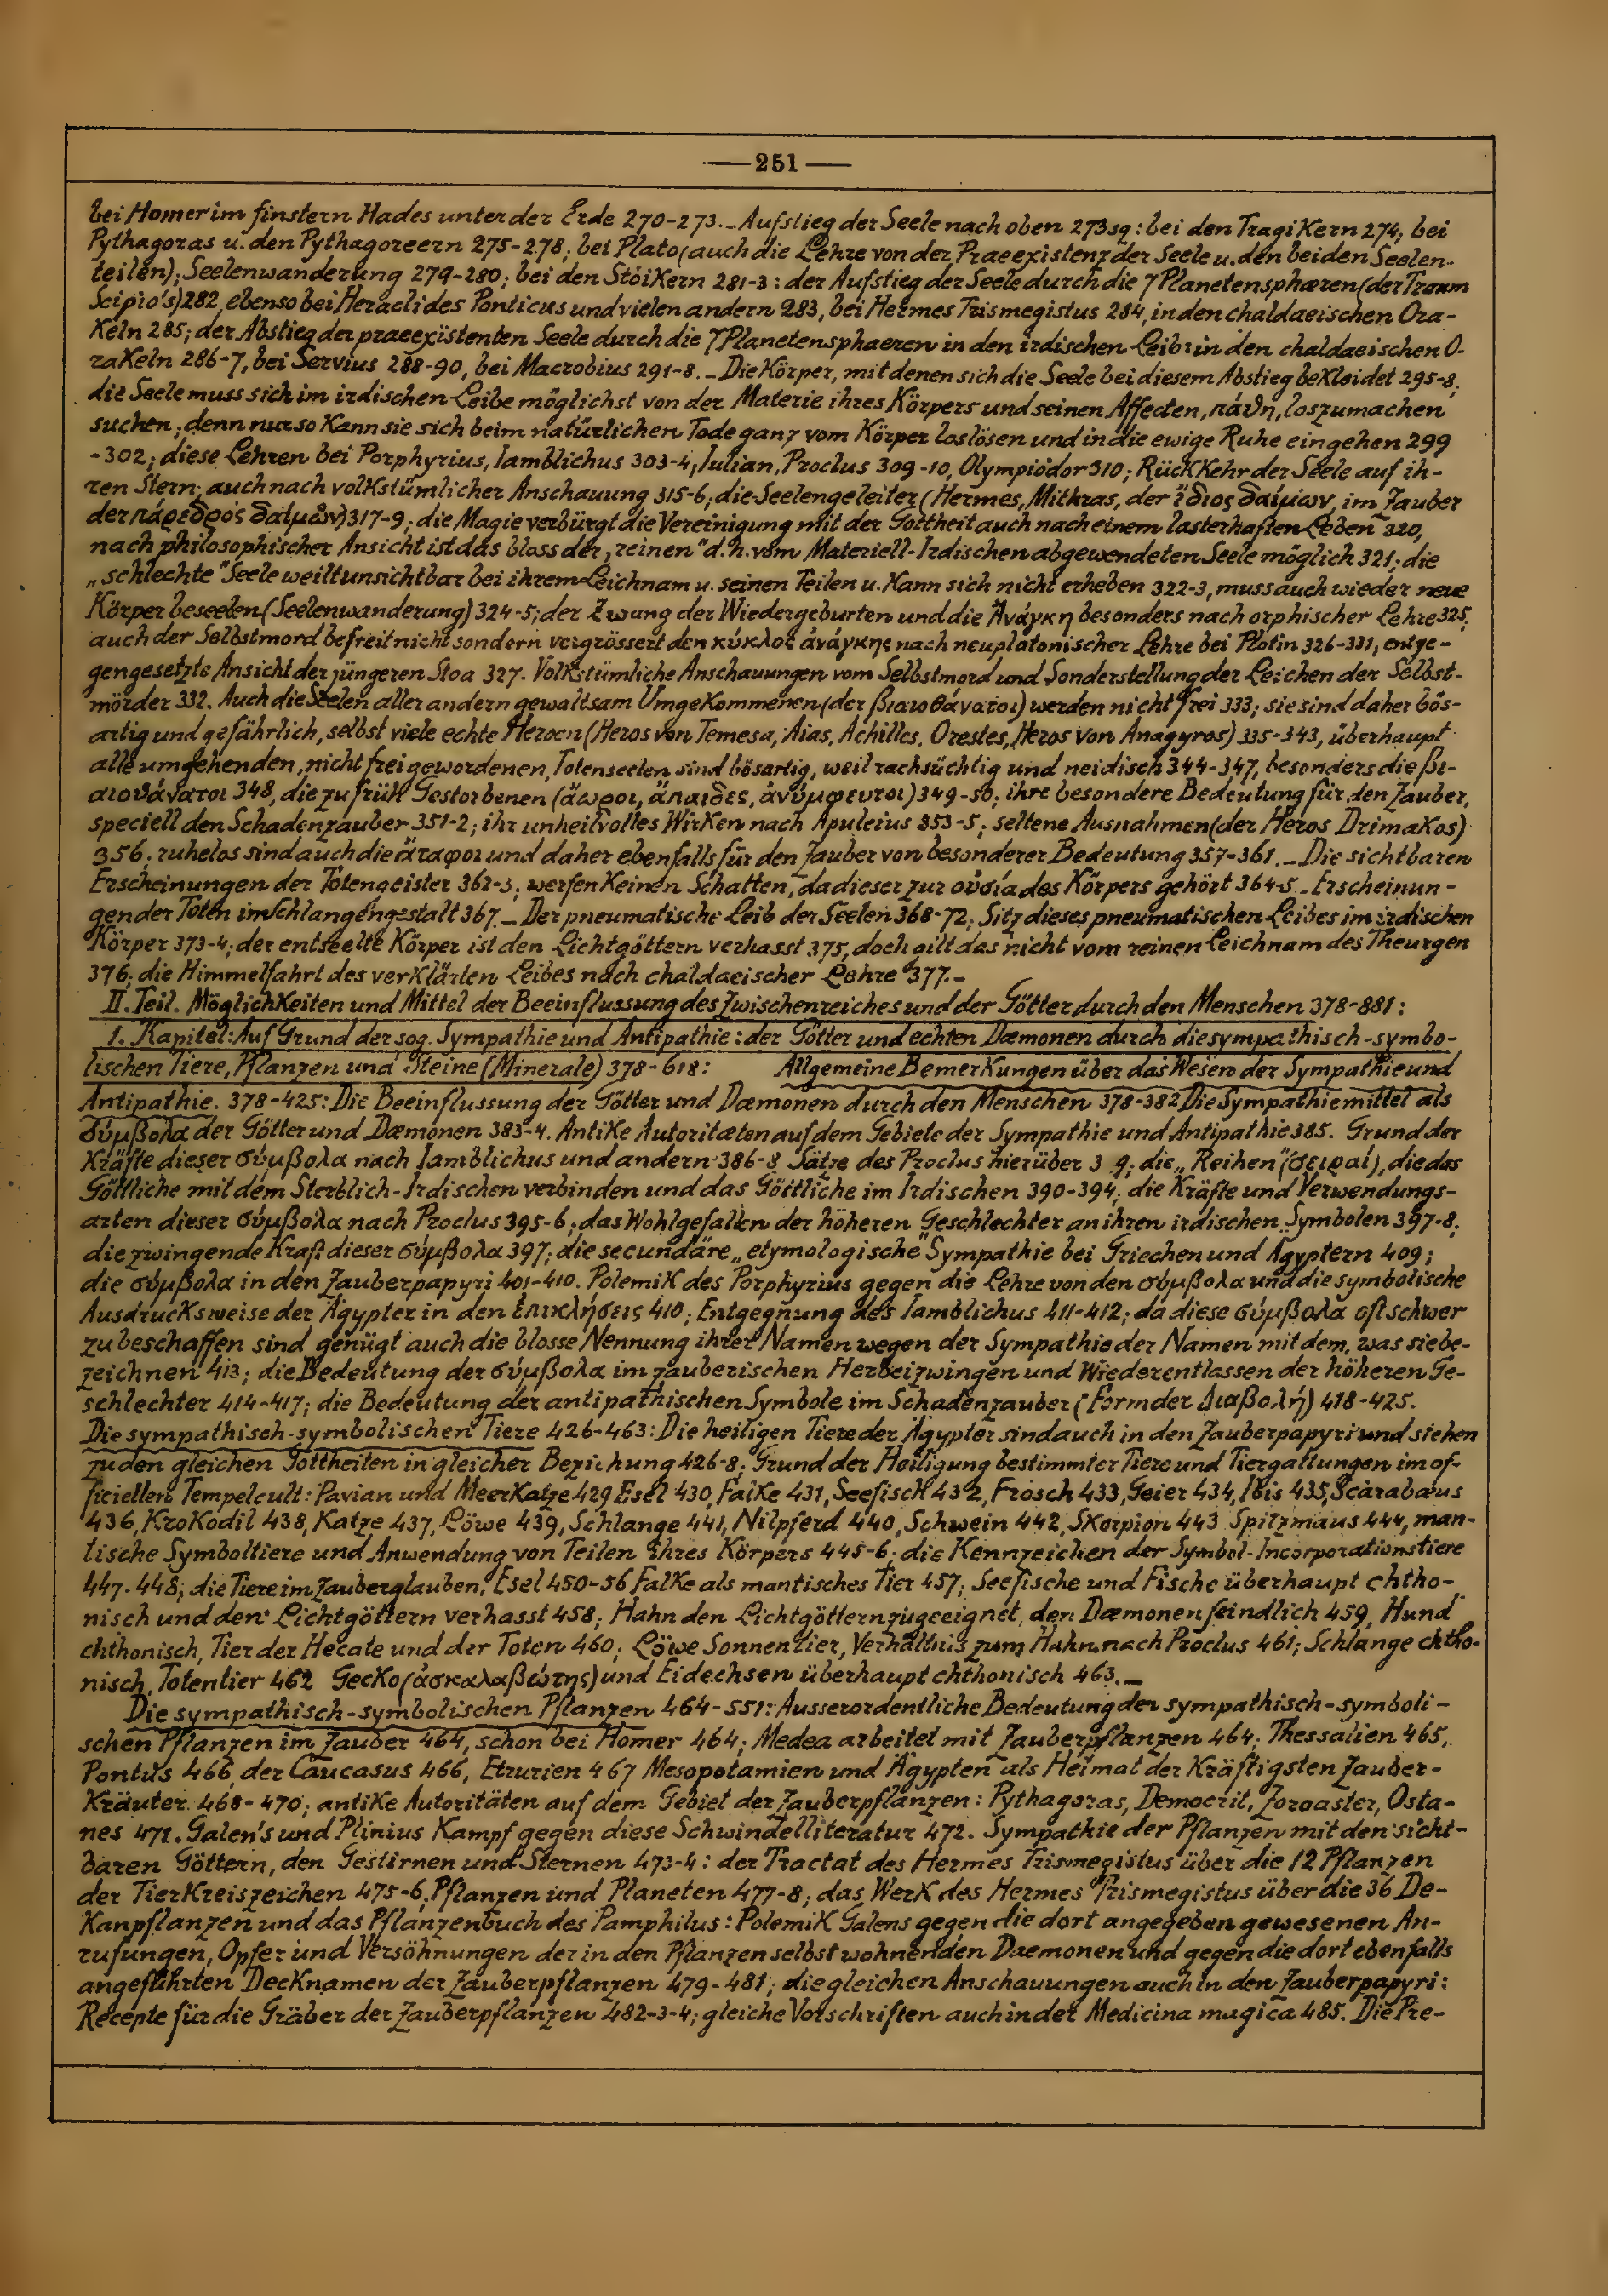 —251—
bei Homer im finstern Hades unter der Erde 270-273._Aufstieg der Seele nach oben 273sq: bei den Tragikern 274, bei
Pythagoras u. den Pythagoreern 275-278; bei Plato (auch die Lehre von der Praeexistenz der Seele u. den beiden Seelen-
teilen); Seelenwanderung 279-280; bei den Stoikern 281-3: der Aufstieg der Seele durch die 7 Planetensphæren (der Traum
Scipio's) 282, ebenso bei Heraclides Ponticus und vielen andern 283, bei Hermes Trismegistus 284, in den chaldaeischen Ora-
keln 285; der Abstieg der praeexistenten Seele durch die 7 Planetensphaeren in den irdischen Leib: in den chaldaeischen O-
rakeln 286-7, bei Servius 288-90, bei Macrobius 291-8._Die Körper, mit denen sich die Seele bei diesem Abstieg bekleidet 295-8;
die Seele muss sich im irdischen Leibe möglichst von der Materie ihres Körpers und seinen Affecten, πάθη, loszumachen
suchen; denn nur so kann sie sich beim natürlichen Tode ganz vom Körper loslösen und in die ewige Ruhe eingehen 299
-302; diese Lehren bei Porphyrius, Iamblichus 303-4, Iulian, Proclus 309-10, Olympiodor 310; Rückkehr der Seele auf ih-
ren Stern, auch nach volkstümlicher Anschauung 315-6; die Seelengeleiter (Hermes, Mithras, der ἴδιος δαίμων, im Zauber
der πάρεδρος δαίμων) 317-9; die Magie verbürgt die Vereinigung mit der Gottheit auch nach einem lasterhaften Leben 320,
nach philosophischer Ansicht ist das bloss der „reinen" d.h. vom Materiell-Irdischen abgewendeten Seele möglich 321; die
„schlechte" Seele weilt unsichtbar bei ihrem Leichnam u. seinen Teilen u. kann sich nicht erheben 322-3, muss auch wieder neue
Körper beseelen (Seelenwanderung) 324-5; der Zwang der Wiedergeburten und die Ἀνάγκη besonders nach orphischer Lehre 325,
auch der Selbstmord befreit nicht sondern vergrössert den κύκλος ἀνάγκης nach neuplatonischer Lehre bei Plotin 326-331, entge-
gengesetzte Ansicht der jüngeren Stoa 327. Volkstümliche Anschauungen vom Selbstmord und Sonderstellung der Leichen der Selbst-
mörder 332. Auch die Seelen aller andern gewaltsam Umgekommenen (der βιαιοθάνατοι) werden nicht frei 333; sie sind daher bös-
artig und gefährlich, selbst viele echte Heroen (Heros von Temesa, Aias, Achilles, Orestes, Heros von Anagyros) 335-343, überhaupt
alle umgehenden, nicht frei gewordenen, Totenseelen sind bösartig, weil rachsüchtig und neidisch 344-347, besonders die βι-
αιοθάνατοι 348, die zu früh Gestorbenen (ἄωροι, ἄπαιδες, ἀνύμφευτοι) 349-50; ihre besondere Bedeutung für den Zauber,
speciell den Schadenzauber 351-2; ihr unheilvolles Wirken nach Apuleius 353-5; seltene Ausnahmen (der Heros Drimakos)
356; ruhelos sind auch die ἄταφοι und daher ebenfalls für den Zauber von besonderer Bedeutung 357-361._Die sichtbaren
Erscheinungen der Totengeister 362-3; werfen keinen Schatten, da dieser zur οὐσία des Körpers gehört 364-5._Erscheinun-
gen der Toten im Schlangengestalt 367._Der pneumatische Leib der Seelen 368-72; Sitz dieses pneumatischen Leibes im irdischen
Körper 373-4; der entseelte Körper ist den Lichtgöttern verhasst 375, doch gilt das nicht vom reinen Leichnam des Theurgen
376; die Himmelfahrt des verklärten Leibes nach chaldaeischer Lehre 377._
II. Teil. Möglichkeiten und Mittel der Beeinflussung des Zwischenreiches und der Götter durch den Menschen 378-881:
1. Kapitel: Auf Grund der sog. Sympathie und Antipathie: der Götter und echten Dæmonen durch die sympathisch-symbo-
lischen Tiere, Pflanzen und Steine (Minerale) 378-618: Allgemeine Bemerkungen über das Wesen der Sympathie und
Antipathie. 378-425: Die Beeinflussung der Götter und Dæmonen durch den Menschen 378-382 Die Sympathiemittel als
σύμβολα der Götter und Dæmonen 383-4. Antike Autoritæten auf dem Gebiete der Sympathie und Antipathie 385. Grund der
Kräfte dieser σύμβολα nach Iamblichus und andern 386-8 Sätze des Proclus hierüber 3 9; die „Reihen" (σειραί), die das
Göttliche mit dem Sterblich-Irdischen verbinden und das Göttliche im Irdischen 390-394; die Kräfte und Verwendungs-
arten dieser σύμβολα nach Proclus 395-6; das Wohlgefallen der höheren Geschlechter an ihren irdischen Symbolen 397-8;
die zwingende Kraft dieser σύμβολα 397; die secundäre „etymologische" Sympathie bei Griechen und Ägyptern 409;
die σύμβολα in den Zauberpapyri 401-410. Polemik des Porphyrius gegen die Lehre von den σύμβολα und die symbolische
Ausdrucksweise der Ägypter in den ἐπικλήσεις 410; Entgegnung des Iamblichus 411-412; da diese σύμβολα oft schwer
zu beschaffen sind genügt auch die blosse Nennung ihrer Namen wegen der Sympathie der Namen mit dem, was sie be-
zeichnen 413; die Bedeutung der σύμβολα im zauberischen Herbeizwingen und Wiederentlassen der höheren Ge-
schlechter 414-417; die Bedeutung der antipathischen Symbole im Schadenzauber (Form der Διαβολή) 418-425.
Die sympathisch-symbolischen Tiere 426-463: Die heiligen Tiere der Ägypter sind auch in den Zauberpapyri und stehen
zu den gleichen Gottheiten in gleicher Beziehung 426-8; Grund der Heiligung bestimmter Tiere und Tiergattungen im of-
ficiellen Tempelcult: Pavian und Meerkatze 429 Esel 430, Falke 431, Seefisch 432, Frosch 433, Geier 434, Ibis 435, Scarabaeus
436, Krokodil 438, Katze 437, Löwe 439, Schlange 441, Nilpferd 440, Schwein 442, Skorpion 443 Spitzmaus 444, man-
tische Symboltiere und Anwendung von Teilen ihres Körpers 445-6; die Kennzeichen der Symbol-Incorporationstiere
447-448; die Tiere im Zauberglauben, Esel 450-56 Falke als mantisches Tier 457; Seefische und Fische überhaupt chtho-
nisch und den Lichtgöttern verhasst 458; Hahn den Lichtgöttern zugeeignet, den Dæmonen feindlich 459, Hund
chthonisch, Tier der Hecate und der Toten 460; Löwe Sonnentier, Verhältnis zum Hahn nach Proclus 461; Schlange chtho-
nisch, Totentier 462 Gecko (ἀσκαλαβώτης) und Eidechsen überhaupt chthonisch 463._
Die sympathisch-symbolischen Pflanzen 464-551: Ausserordentliche Bedeutung der sympathisch-symboli-
schen Pflanzen im Zauber 464, schon bei Homer 464; Medea arbeitet mit Zauberpflanzen 464; Thessalien 465,
Pontus 466, der Caucasus 466, Etrurien 467 Mesopotamien und Ägypten als Heimat der kräftigsten Zauber-
kräuter 468-470; antike Autoritäten auf dem Gebiet der Zauberpflanzen: Pythagoras, Democrit, Zoroaster, Osta-
nes 471. Galen's und Plinius Kampf gegen diese Schwindelliteratur 472. Sympathie der Pflanzen mit den sicht-
baren Göttern, den Gestirnen und Sternen 473-4: der Tractat des Hermes Trismegistus über die 12 Pflanzen
der Tierkreiszeichen 475-6, Pflanzen und Planeten 477-8; das Werk des Hermes Trismegistus über die 36 De-
kanpflanzen und das Pflanzenbuch des Pamphilus: Polemik Galens gegen die dort angegeben gewesenen An-
rufungen, Opfer und Versöhnungen der in den Pflanzen selbst wohnenden Daemonen und gegen die dort ebenfalls
angeführten Decknamen der Zauberpflanzen 479-481; die gleichen Anschauungen auch in den Zauberpapyri:
Recepte für die Gräber der Zauberpflanzen 482-3-4; gleiche Vorschriften auch in der Medicina magica 485. Die Pre-